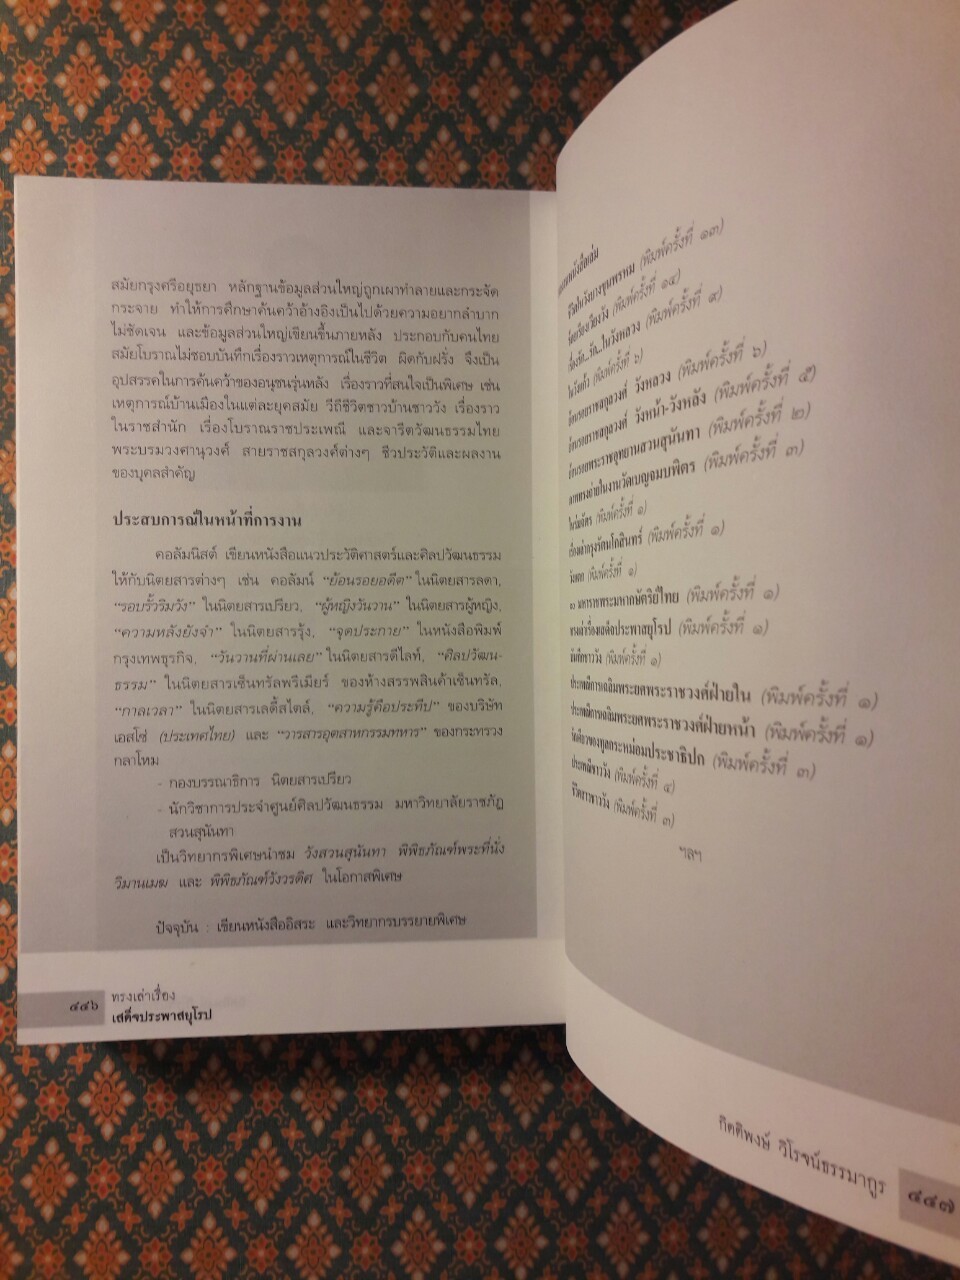 สมัยกรุงศรีอยุธยา หลักฐานข้อมูลส่วนใหญ่ถูกเผาทำลายและกระจัด
กระจาย ทำให้การศึกษาค้นคว้าอ้างอิงเป็นไปด้วยความอยากลำบาก
ไม่ชัดเจน และข้อมูลส่วนใหญ่เขียนขึ้นภายหลัง ประกอบกับคนไทย
สมัยโบราณไม่ชอบบันทึกเรื่องราวเหตุการณ์ในชีวิต ผิดกับฝรั่ง จึงเป็น
อุปสรรคในการค้นคว้าของอนุชนรุ่นหลัง เรื่องราวที่สนใจเป็นพิเศษ เช่น
เหตุการณ์บ้านเมืองในแต่ละยุคสมัย วีถีชีวิตชาวบ้านชาววัง เรื่องราว
ในราชสำนัก เรื่องโบราณราชประเพณี และจารีตวัฒนธรรมไทย
พระบรมวงศานุวงศ์ สายราชสกุลวงศ์ต่างๆ ชีวประวัติและผลงาน
ของบุคลสำคัญ
ประสบการณ์ในหน้าที่การงาน
คอลัมนิสต์ เขียนหนังสือแนวประวัติศาสตร์และศิลปวัฒนธรรม
ให้กับนิตยสารต่างๆ เช่น คอลัมน์ “ย้อนรอยอดีต” ในนิตยสารลตา,
“รอบรั้วริมวัง” ในนิตยสารเปรียว, “ผู้หญิงวันวาน” ในนิตยสารผู้หญิง,
“ความหลังยังจำ” ในนิตยสารรุ้ง, “จุดประกาย” ในหนังสือพิมพ์
กรุงเทพธุรกิจ, “วันวานที่ผ่านเลย” ในนิตยสารดีไลท์, “ศิลปวัฒน-
ธรรม” ในนิตยสารเซ็นทรัลพรีเมียร์ ของห้างสรรพสินค้าเซ็นทรัล,
“กาลเวลา” ในนิตยสารเลดี้สไตล์, “ความรู้คือประทีป” ของบริษัท
เอสโซ่ (ประเทศไทย) และ “วารสารอุตสาหกรรมทหาร” ของกระทรวง
กลาโหม
- กองบรรณาธิการ นิตยสารเปรียว
- นักวิชาการประจำศูนย์ศิลปวัฒนธรรม มหาวิทยาลัยราชภัฏ
สวนสุนันทา
เป็นวิทยากรพิเศษนำชม วังสวนสุนันทา พิพิธภัณฑ์พระที่นั่ง
วิมานเมฆ และ พิพิธภัณฑ์วังวรดิศ ในโอกาสพิเศษ
ปัจจุบัน : เขียนหนังสืออิสระ และวิทยากรบรรยายพิเศษ
๔๔๖ ทรงเล่าเรื่อง
เสด็จประพาสยุโรป
ชีวิตในวังบางขุนพรหม (พิมพ์ครั้งที่ ๑๓)
ร้อยเรื่องเวียงวัง (พิมพ์ครั้งที่ ๑๔)
เรื่องรัก...รัก...ในวังหลวง (พิมพ์ครั้งที่ ๙)
ในวังแก้ว (พิมพ์ครั้งที่ ๖)
ย้อนรอยราชสกุลวงศ์ วังหลวง (พิมพ์ครั้งที่ ๖)
ย้อนรอยราชสกุลวงศ์ วังหน้า-วังหลัง (พิมพ์ครั้งที่ ๕)
ย้อนรอยพระราชอุทยานสวนสุนันทา (พิมพ์ครั้งที่ ๒)
ภาพทรงถ่ายในงานวัดเบญจมบพิตร (พิมพ์ครั้งที่ ๓)
ในร่มฉัตร (พิมพ์ครั้งที่ ๑)
เรื่องเล่ากรุงรัตนโกสินทร์ (พิมพ์ครั้งที่ ๑)
(พิมพ์ครั้งที่ ๑)
๑๐ มหาราชพระมหากษัตริย์ไทย (พิมพ์ครั้งที่ ๑)
ทรงเล่าเรื่องเสด็จประพาสยุโรป (พิมพ์ครั้งที่ ๑)
บันทึกชาววัง (พิมพ์ครั้งที่ ๑)
ประเพณีการเฉลิมพระยศพระราชวงศ์ฝ่ายใน (พิมพ์ครั้งที่ ๑)
ประเพณีการเฉลิมพระยศพระราชวงศ์ฝ่ายหน้า (พิมพ์ครั้งที่ ๑)
รักเดียวของทูลกระหม่อมประชาธิปก (พิมพ์ครั้งที่ ๓)
ประเพณีชาววัง (พิมพ์ครั้งที่ ๔)
ชีวิตสาวชาววัง (พิมพ์ครั้งที่ ๓)
ฯลฯ
กิตติพงษ์ วิโรจน์ธรรมากูร ๔๔๗